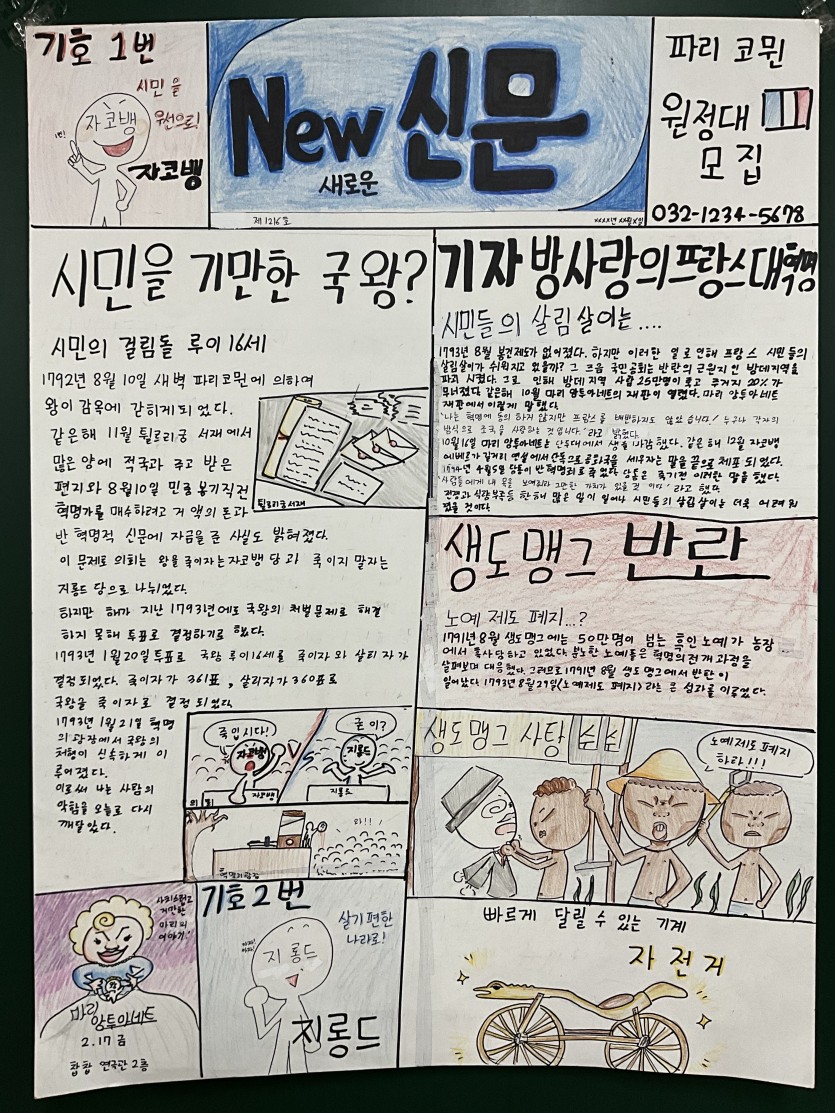 기호 1번
시민을
우선으로!
자코뱅
자코뱅
New 신문
새로운
제 1216호
xxxx년 xx월 x일
파리 코뮌
원정대
모집
032-1234-5678
시민을 기만한 국왕?
시민의 걸림돌 루이 16세
1792년 8월 10일 새벽 파리코뮌에 의하여
왕이 감옥에 갇히게 되었다.
같은해 11월 튈르리궁 서재에서
많은 양에 적국과 주고 받은
편지와 8월10일 민중 봉기직전
혁명가를 매수하려고 거액의 돈과
반 혁명적 신문에 자금을 준 사실도 밝혀졌다.
이 문제로 의회는 왕을 죽이자는 자코뱅 당과 죽이지 말자는
지롱드 당으로 나뉘었다.
하지만 해가 지난 1793년에도 국왕의 처벌문제로 해결
하지 못해 투표로 결정하기로 했다.
1793년 1월20일 투표로 국왕 루이16세를 죽이자와 살리자가
결정되었다. 죽이자가 361표, 살리자가 360표로
국왕을 죽이자로 결정 되었다.
1793년 1월21일 혁명
의 광장에서 국왕의
처형이 신속하게 이
루어졌다.
이로써 나는 사람의
악함을 오늘로 다시
깨달았다.
튈르리궁서재
죽입시다!
자코뱅
자코뱅
의회
VS
굳이?
지롱드
지롱드
혁명의광장
와!!
기자 방사랑의 프랑스대혁명
시민들의 살림살이는....
1793년 8월 봉건제도가 없어졌다. 하지만 이러한 일로 인해 프랑스 시민들의
살림살이가 쉬워지고 있을까? 그 쯔음 국민공회는 반란의 근원지인 방데지역을
파괴 시켰다. 그로 인해 방데 지역 사람 25만명이 죽고 주거지 20%가
무너졌다. 같은해 10월 마리 앙투아네트의 재판이 열렸다. 마리 앙투아네트
재판에서 이렇게 말했다.
"나는 혁명에 동의 하지 않지만 프랑스를 배반하지도 않았습니다! 누구나 각자의
방식으로 조국을 사랑하는 것입니다."라고 밝혔다.
10월16일 마리 앙투아네트는 단두대에서 생을 마감했다. 같은해 12월 자코뱅
에베르가 길거리 연설에서 산독으로 공화국을 세우자는 말을 끝으로 체포 되었다.
1794년 4월5일 당통이 반혁명죄로 죽었다 당통은 죽기전 이러한 말을 했다.
"사람들에게 내 목을 보여줘라 그만한 가치가 있을 것이다"라고 했다.
전쟁과 식량부족등 한해 많은 일이 일어나 시민들의 살림살이는 더욱 어려워
졌을 것이다.
생도맹그 반란
노예 제도 폐지...?
1791년 8월 생도맹그에는 50만명이 넘는 흑인 노예가 농장
에서 혹사당하고 있었다. 분노한 노예들은 혁명의 전개 과정을
살펴보며 대응했다. 그러므로 1791년 8월 생도맹그에서 반란이
일어났다. 1793년 8월29일<노예제도 폐지>라는 큰 성과를 이루었다.
생도맹그 사탕수수
노예제도 폐지
하라!!!
사치스럽고
거만한
마리의
이야기!
마리
앙투아네트
2.17 금
찹찹 연극관 2층
기호2번
살기 편한
나라로!
지롱드
지롱드
빠르게 달릴 수 있는 기계
자전거